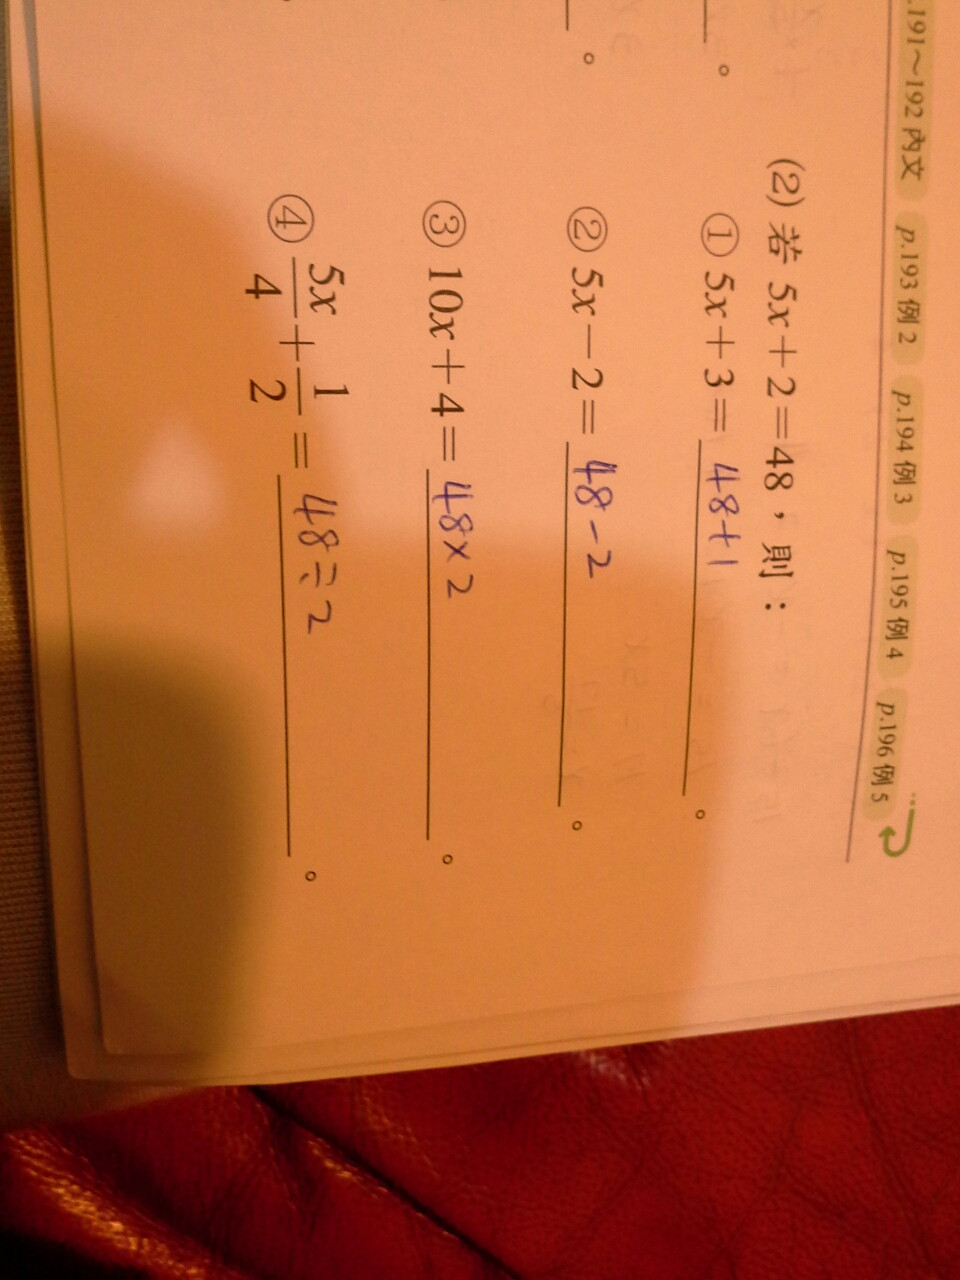 .191～192 內文 p.193 例 2 p.194 例 3 p.195 例 4 p.196 例 5
(2) 若 5x+2=48，則：
① 5x+3= 48+1 。
② 5x-2= 48-2 。
③ 10x+4= 48×2 。
④ 5x/4 + 1/2 = 48÷2 。